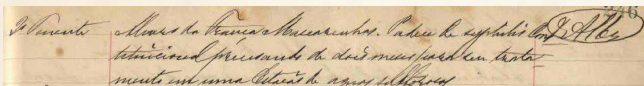 2º Tenente Alvaro da Franca Mascarenhas. Padece de syphilis cons
titucional precisando de dois meses para seu trata
mento em uma Estação de aguas sulfurosas